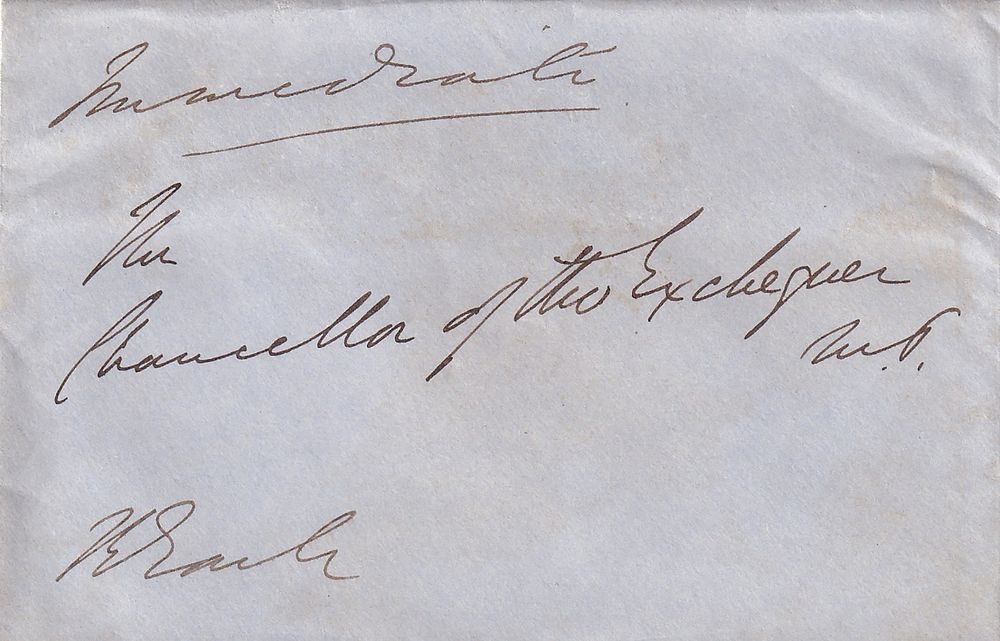 Immediate
The
Chancellor of the Exchequer
M.P.
R Earle